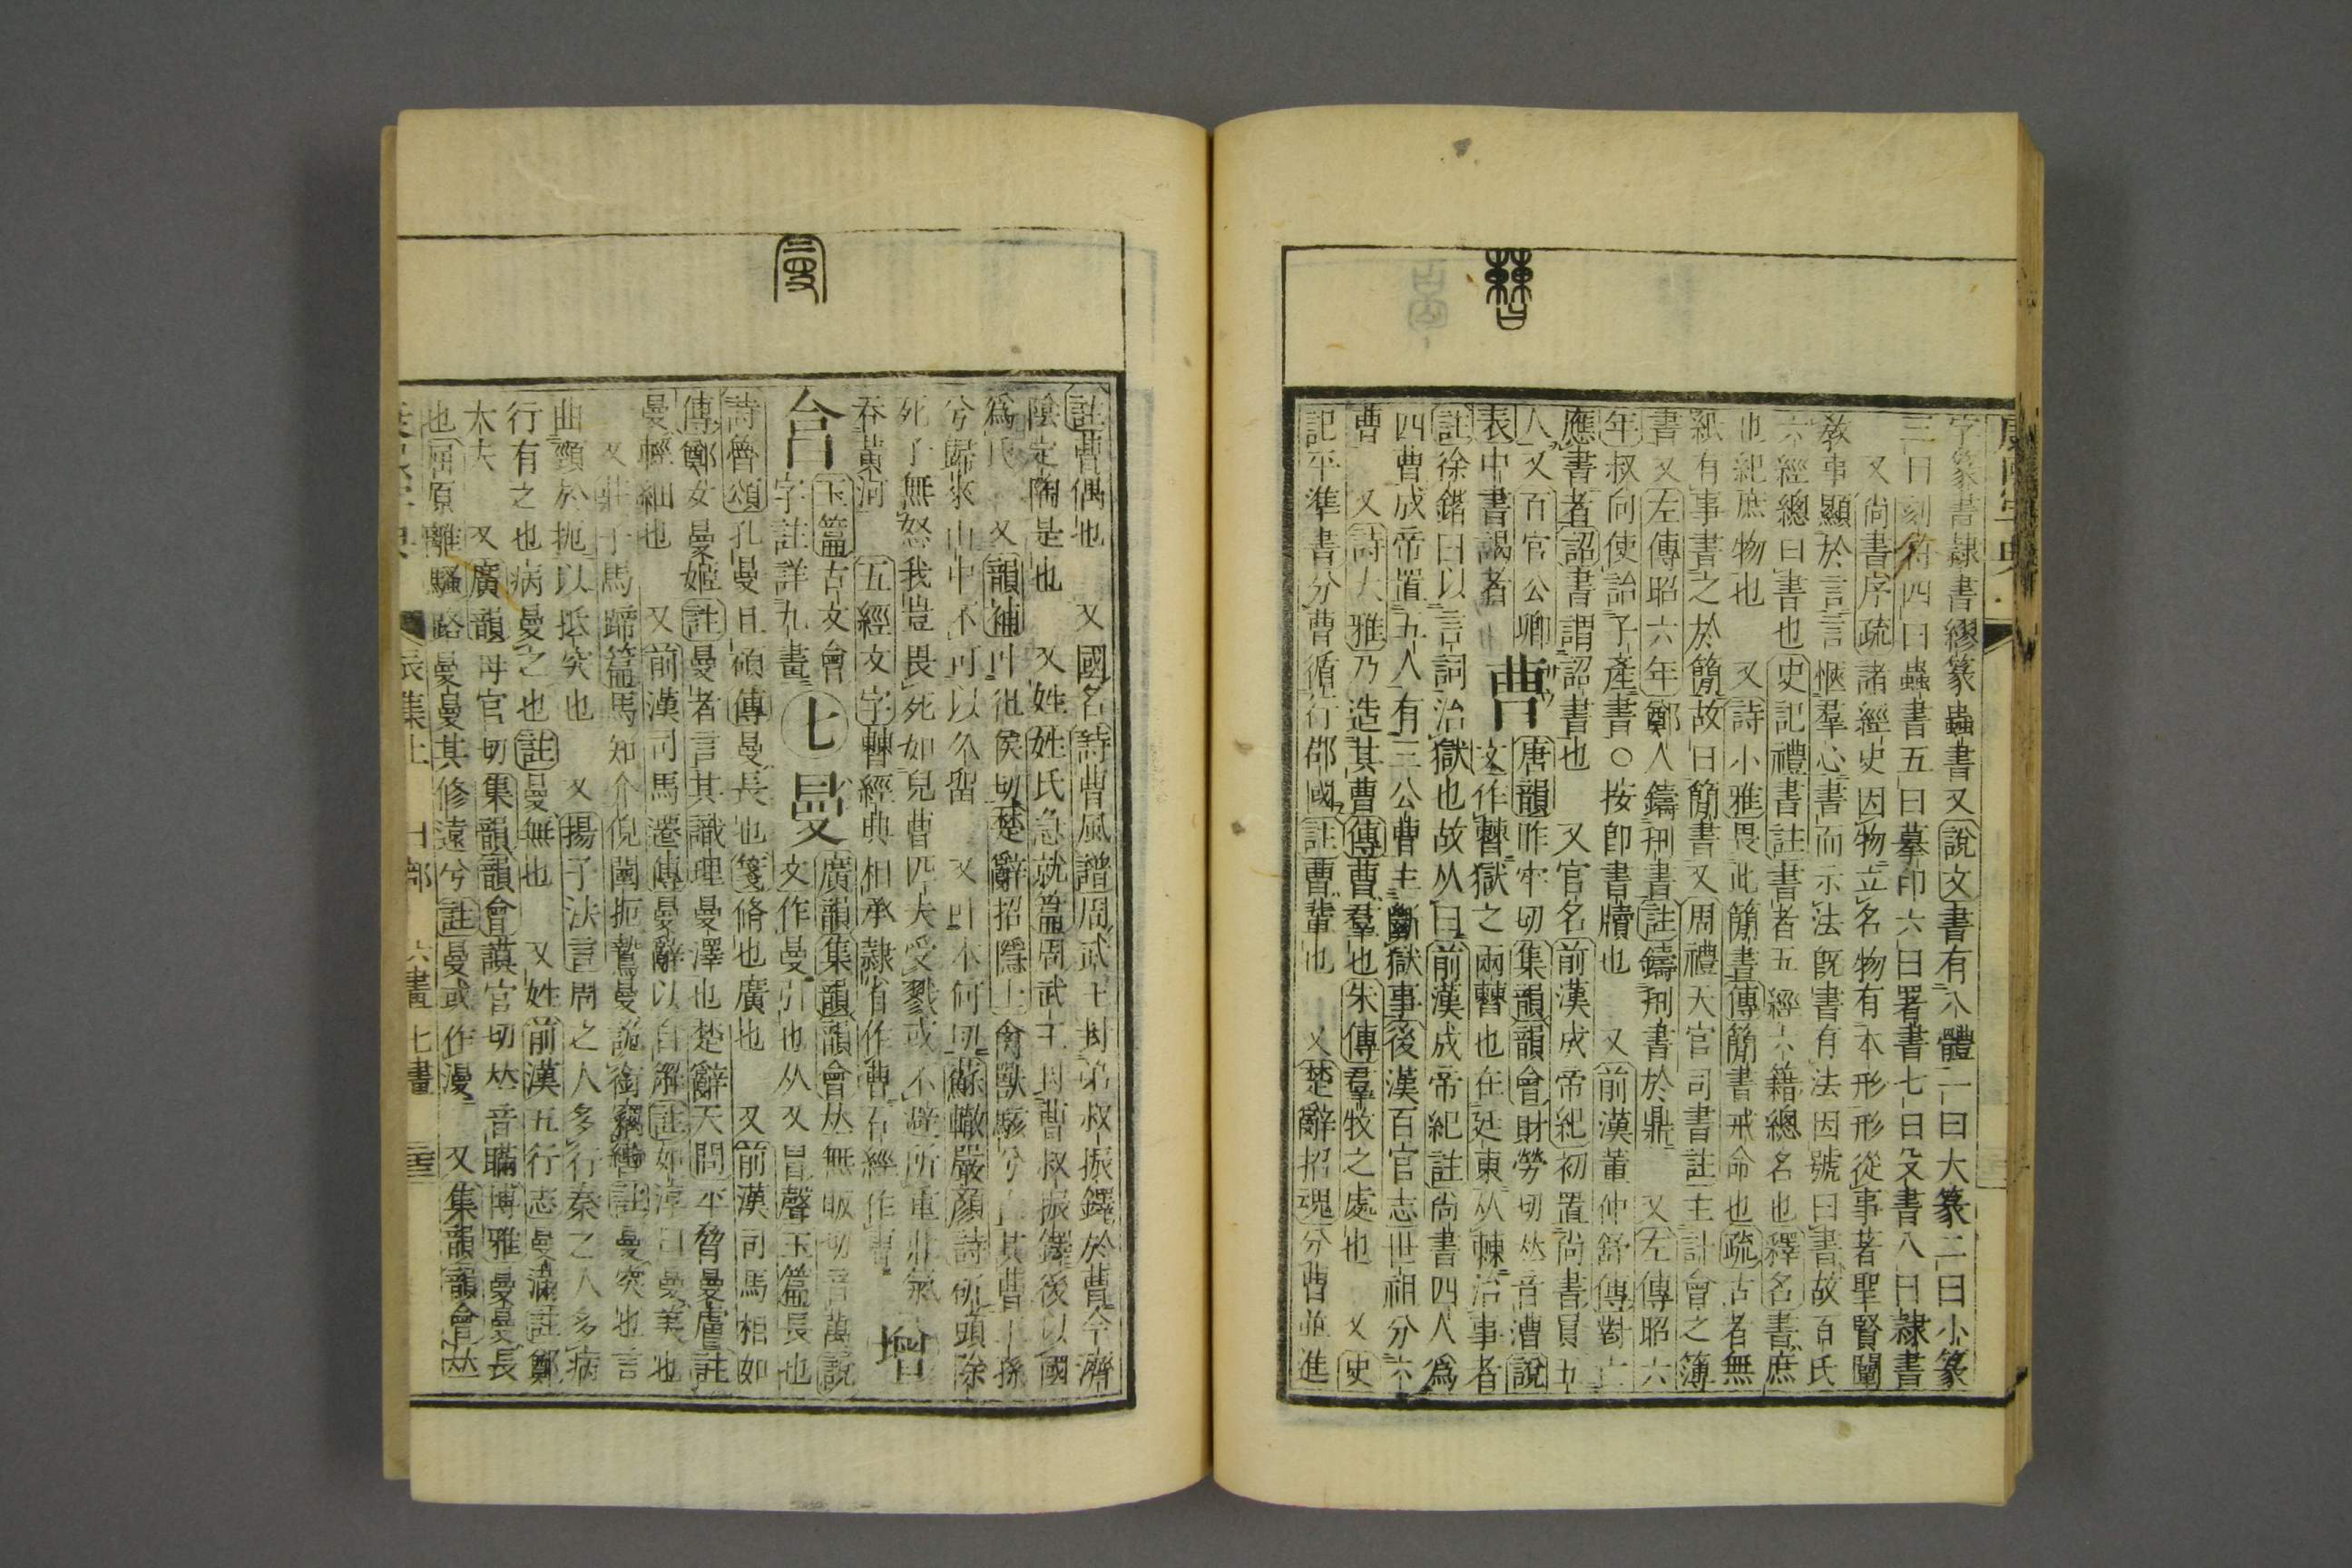 字篆書隷書繆篆蟲書又說文書有八體一曰大篆二曰小篆
三曰刻符四曰蟲書五曰摹印六曰署書七曰殳書八曰隷書
又尚書序疏諸經史因物立名物有本形形從事著聖賢闡
敎事顯於言言愜羣心書而示法旣書有法因號曰書故百氏
六經總曰書也 史記禮書註書者五經六籍總名也釋名書庶
也紀庶物也 又詩小雅畏此簡書傳簡書戒命也疏古者無
紙有事書之於簡故曰簡書又周禮天官司書註主計會之簿
書 又左傳昭六年鄭人鑄𠛬書註鑄𠛬書於鼎 又左傳昭六
年叔向使詒子產書○按卽書牘也 又前漢董仲舒傳對亡
應書者詔書謂詔書也 又官名前漢成帝紀初置尚書員五
人又百官公卿
表中書謁者
曹
唐韻昨牢切集韻韻會財勞切𠀤音漕說
文作𣍘獄之兩𣍘也在廷東从㯥治事者
註徐鍇曰以言詞治獄也故从曰前漢成帝紀註尚書四人爲
四曹成帝置五人有三公曹主斷獄事後漢百官志世祖分六
曹 又詩大雅乃造其曹傳曹羣也朱傳羣牧之處也 又史
記平準書分曹循行郡國註曹輩也 又楚辭招魂分曹並進
註曹偶也 又國名詩曹風譜周武王封弟叔振鐸於曹今濟
隂定陶是也 又姓姓氏急就篇周武王封曹叔振鐸後以國
爲氏 又韻補叶徂侯切楚辭招隱士禽獸駭兮亡其曹王孫
兮歸來山中不可以久留 又叶本何切蘇轍嚴顏詩斫頭除
死子無怒我豈畏死如兒曹匹夫受戮或不避所重壯氣
吞黃河 五經文字𣍘經典相承隷省作曹石經作曹
㑹
玉篇古文會
字註詳九畫
七
曼
廣韻集韻韻會𠀤無販切音萬說
文作曼引也从又冒聲玉篇長也
詩魯頌孔曼且碩傳曼長也箋脩也廣也 又前漢司馬相如
傳鄭女曼姬註曼者言其識理曼澤也楚辭天問平脅曼膚註
曼輕細也 又前漢司馬遷傳曼辭以自解註如淳曰曼美也
又莊子馬蹄篇馬知介倪闉扼鷙曼詭銜竊轡註曼突也言
曲頸於扼以抵突也 又揚子法言周之人多行秦之人多病
行有之也病曼之也註曼無也 又姓前漢五行志曼滿註鄭
大夫 又廣韻母官切集韻韻會謨官切𠀤音瞞博雅曼曼長
也屈原離騷路曼曼其修遠兮註曼或作漫 又集韻韻會𠀤
辰集上 曰部 六畫七畫